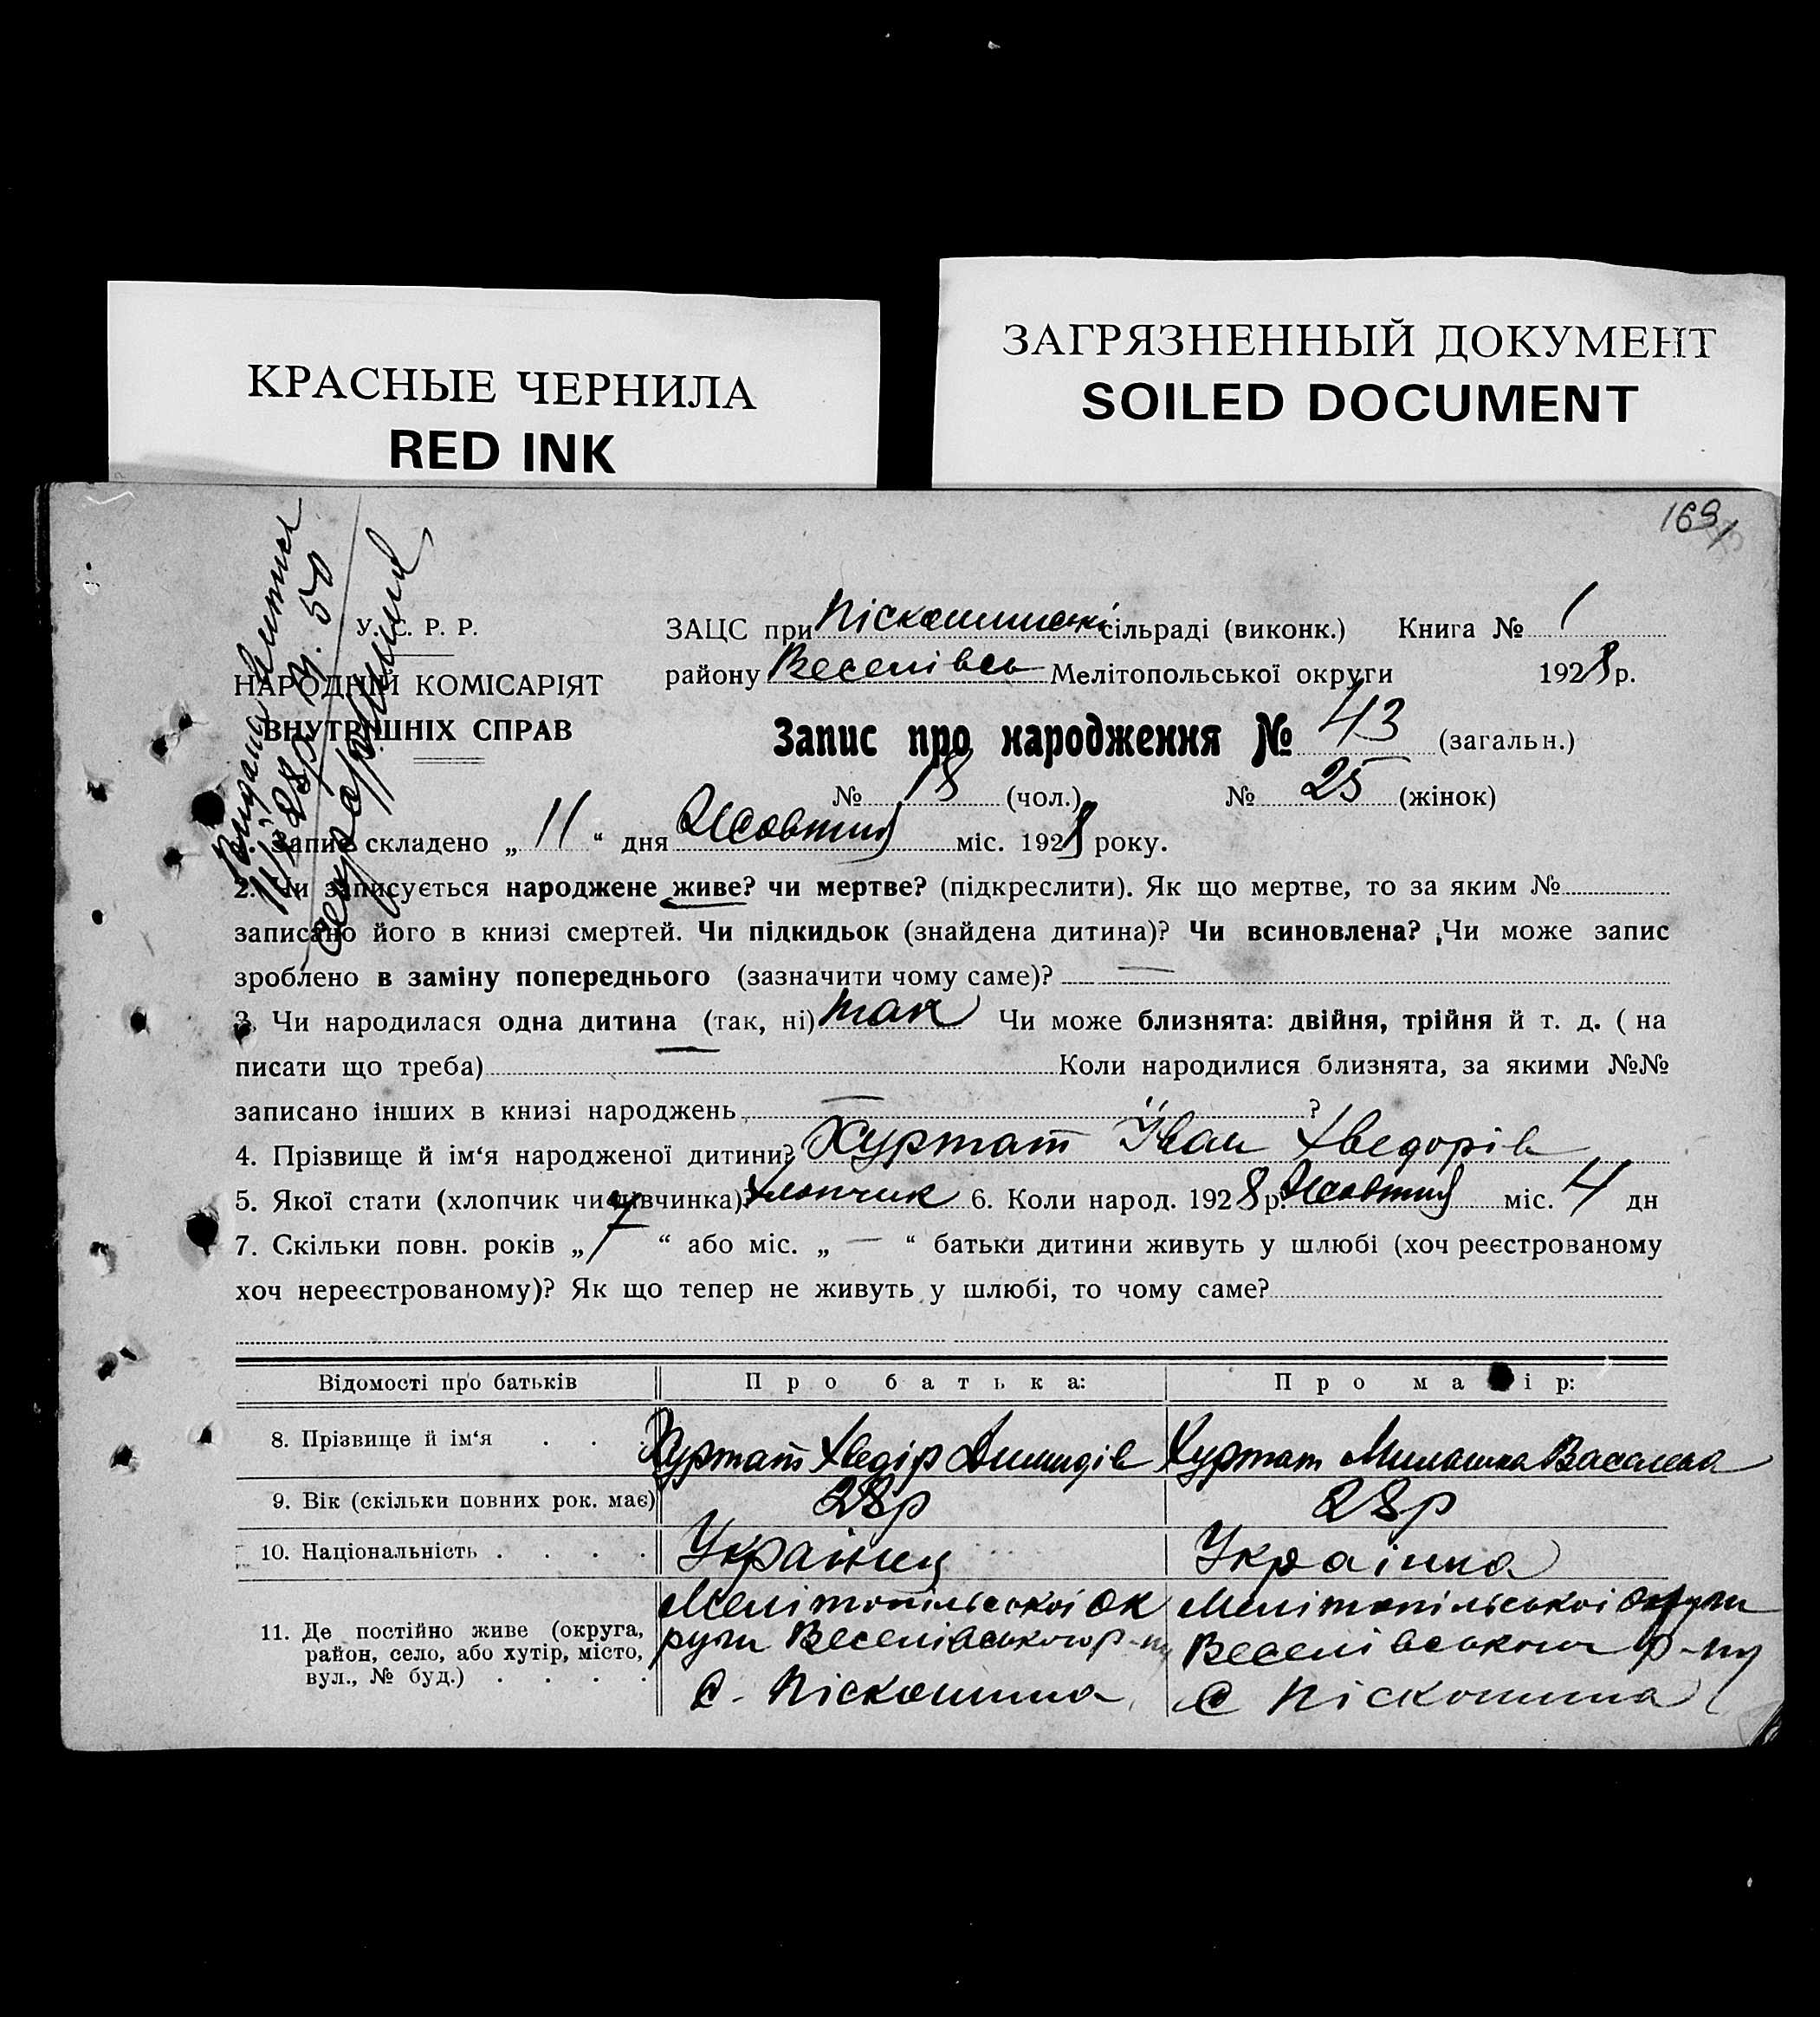 КРАСНЫЕ ЧЕРНИЛА
RED INK
ЗАГРЯЗНЕННЫЙ ДОКУМЕНТ
SOILED DOCUMENT
169
У. С. Р. Р.
НАРОДНІЙ КОМІСАРІЯТ
ВНУТРІШНІХ СПРАВ
ЗАЦС при Піскошинскі сільраді (виконк.) Книга № 1
району Веселівсь Мелітопольської округи 1928 р.
Запис про народження № 43 (загальн.)
№ 18 (чол.) № 25 (жінок)
Запис складено „ 11 “ дня Жовтня міс. 1928 року.
2. Чи записується народжене живе? чи мертве? (підкреслити). Як що мертве, то за яким №
записано його в книзі смертей. Чи підкидьок (знайдена дитина)? Чи всиновлена? Чи може запис
зроблено в заміну попереднього (зазначити чому саме)? —
3. Чи народилася одна дитина (так, ні) так Чи може близнята: двійня, трійня й т. д. ( на
писати що треба) — Коли народилися близнята, за якими №№
записано інших в книзі народжень — ?
4. Прізвище й ім‘я народженої дитини? Хуртат Іван Хведорів
5. Якої стати (хлопчик чи дівчинка)? Хлопчик 6. Коли народ. 1928 р. Жовтня міс. 4 дн
7. Скільки повн. років „ 7 “ або міс. „ — “ батьки дитини живуть у шлюбі (хоч реєстрованому
хоч нереєстрованому)? Як що тепер не живуть у шлюбі, то чому саме?
Відомості про батьків Про батька: Про матір:
8. Прізвище й ім‘я . . . Хуртат Хведір Хуртат
9. Вік (скільки повних рок. має) 28р 28р
10. Національність . . . . Українец Українка
11. Де постійно живе (округа, район, село, або хутір, місто, вул., № буд.) . . . .
Мелітопільської Ок
руги Веселівського р-ну
с. Піскошина
Мелітопільської Округи
Веселівського р-ну
с Піскошина